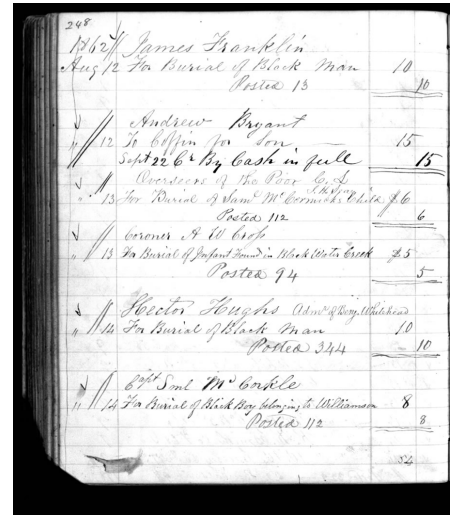 248
1862 James Franklin
Aug 12 For Burial of Black Man 10
Posted 13 10
Andrew Bryant
" 12 To Coffin for Son 15
Sept 22 Cr By Cash in full 15
Overseers of the Poor
" 13 For Burial of Saml McCormicks Child $6
Posted 112 6
Coroner A W C
" 13 For Burial of Infant Found in Black Water Creek $5
Posted 94 5
Hector Hughs Admr of Benj. Whitehead
" 14 For Burial of Black Man 10
Posted 344 10
Capt Sml McCorkle
" 14 For Burial of Black Boy belonging to Williamson 8
Posted 112 8
54